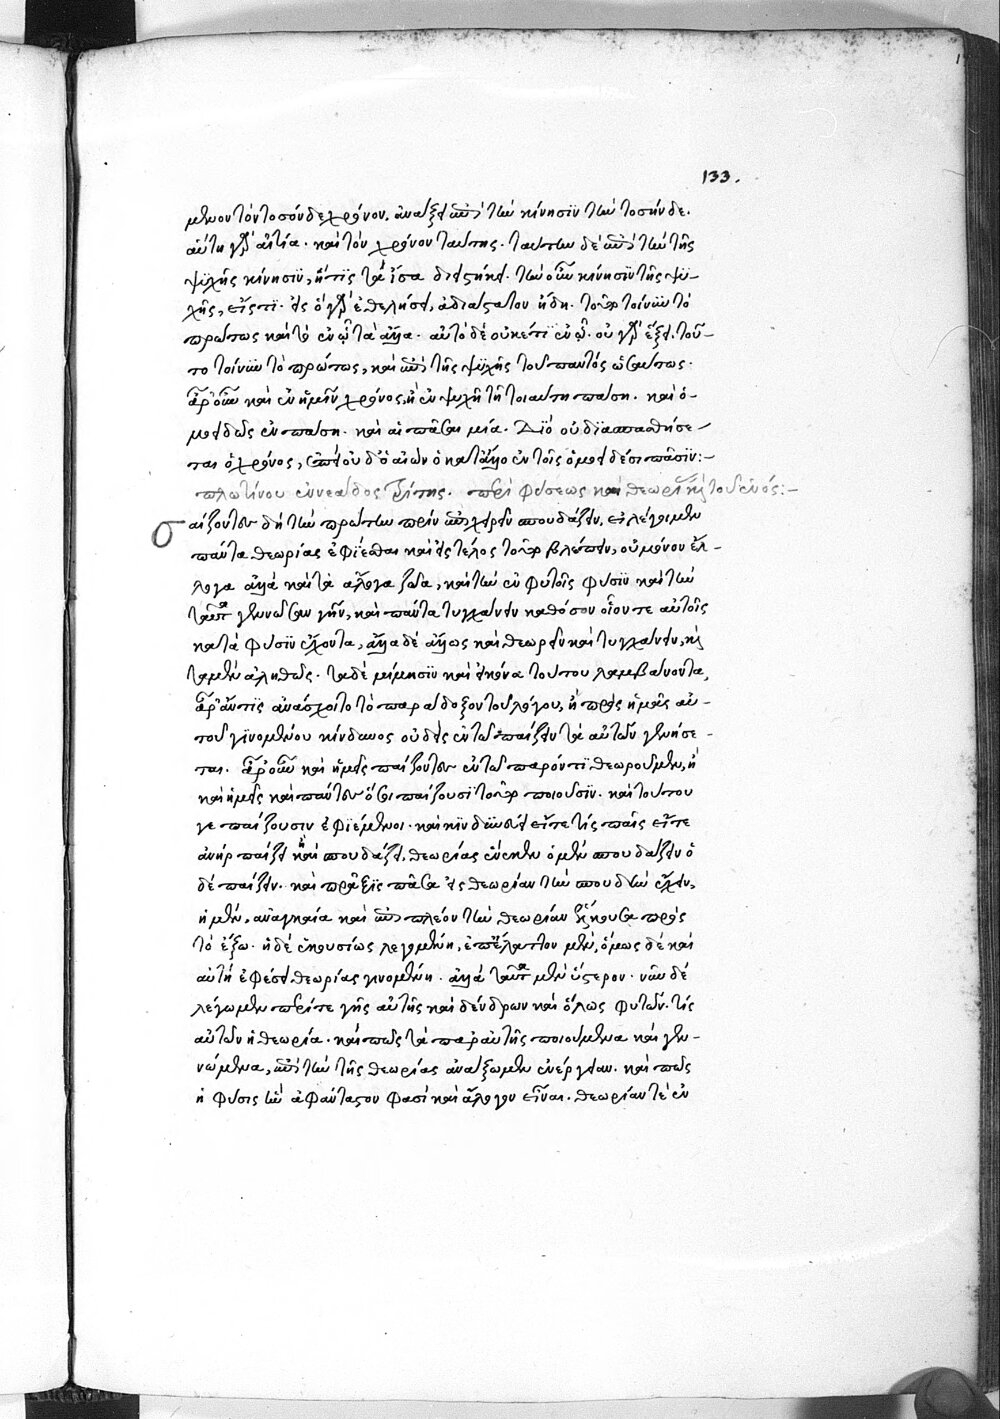 133.
μενον τὸν τοσόνδε χρόνον. ἀνάξει ἐπὶ τὴν κίνησιν τὴν τοσήνδε.
αὕτη γὰρ αἰτία. καὶ τὸν χρόνον ταύτης. ταύτην δὲ ἐπὶ τὴν τῆς
ψυχῆς κίνησιν, ἥτις τὰ ἴσα διειστήκει. τὴν οὖν κίνησιν τῆς ψυ-
χῆς, εἰς τί. εἰς ὃ γὰρ ἐθελήσει, ἀδιάστατον ἤδη. τοῦτο τοίνυν τὸ
πρώτως καὶ τὸ ἐν ᾧ τὰ ἄλλα. αὐτὸ δὲ οὐκέτι ἐν ᾧ. οὐ γὰρ ἕξει. τοῦ-
το τοίνυν τὸ πρώτως, καὶ ἐπὶ τῆς ψυχῆς τοῦ παντὸς ὡσαύτως.
ἆρ' οὖν καὶ ἐν ἡμῖν χρόνος, ἢ ἐν ψυχῇ τῇ τοιαύτῃ πάσῃ. καὶ ὁ-
μοειδῶς ἐν πάσῃ. καὶ αἱ πᾶσαι μία. Διὸ οὐ διασπασθήσε-
ται ὁ χρόνος, ἐπεὶ οὐδ' ὁ αἰὼν ὁ κατ' ἄλλο ἐν τοῖς ὁμοειδέσι πᾶσιν:-
πλωτίνου ἐννεάδος τρίτης. περὶ φύσεως καὶ θεωρίας καὶ τοῦ ἑνός:-
σ
αίζοντες δὴ τὴν πρώτην πρὶν ἐπιχειρεῖν σπουδάζειν, εἰ λέγοιμεν
πάντα θεωρίας ἐφίεσθαι καὶ εἰς τέλος τοῦτο βλέπειν, οὐ μόνον ἔλ-
λογα ἀλλὰ καὶ τὰ ἄλογα ζῷα, καὶ τὴν ἐν φυτοῖς φύσιν καὶ τὴν
ταῦτα γεννῶσαν γῆν, καὶ πάντα τυγχάνειν καθόσον οἷόν τε αὐτοῖς
κατὰ φύσιν ἔχοντα, ἄλλα δὲ ἄλλως καὶ θεωρεῖν καὶ τυγχάνειν, καὶ
τὰ μὲν ἀληθῶς. τὰ δὲ μίμησιν καὶ εἰκόνα τούτου λαμβάνοντα,
ἆρ' ἄν τις ἀνάσχοιτο τὸ παράδοξον τοῦ λόγου, ἢ πρὸς ἡμᾶς αὐ-
τοῦ γινομένου κίνδυνος οὐδεὶς ἐν τῷ παίζειν τὰ αὑτῶν γενήσε-
ται. ἆρ' οὖν καὶ ἡμεῖς παίζοντες ἐν τῷ παρόντι θεωροῦμεν, ἢ
καὶ ἡμεῖς καὶ πάντες ὅσοι παίζουσι τοῦτο ποιοῦσιν. καὶ τούτου
γε παίζουσιν ἐφιέμενοι. καὶ κινδυνεύει εἴτε τις παῖς εἴτε
ἀνὴρ παίζει ἢ σπουδάζει, θεωρίας ἕνεκεν ὁ μὲν σπουδάζειν ὁ
δὲ παίζειν. καὶ πρᾶξις πᾶσα εἰς θεωρίαν τὴν σπουδὴν ἔχειν,
ἡ μὲν, ἀναγκαία καὶ ἐπὶ πλέον τὴν θεωρίαν ἕλκουσα πρὸς
τὸ ἔξω. ἡ δὲ ἑκουσίως λεγομένη, ἐπ' ἔλαττον μὲν, ὅμως δὲ καὶ
αὐτὴ ἐφέσει θεωρίας γινομένη. ἀλλὰ ταῦτα μὲν ὕστερον. νῦν δὲ
λέγωμεν περί τε γῆς αὐτῆς καὶ δένδρων καὶ ὅλως φυτῶν. τίς
αὐτῶν ἡ θεωρία. καὶ πῶς τὰ παρ' αὐτῆς ποιούμενα καὶ γεν-
νώμενα, ἐπὶ τὴν τῆς θεωρίας ἀνάξωμεν ἐνέργειαν. καὶ πῶς
ἡ φύσις ἣν ἀφάνταστον φασὶ καὶ ἄλογον εἶναι. θεωρίαν τε ἐν